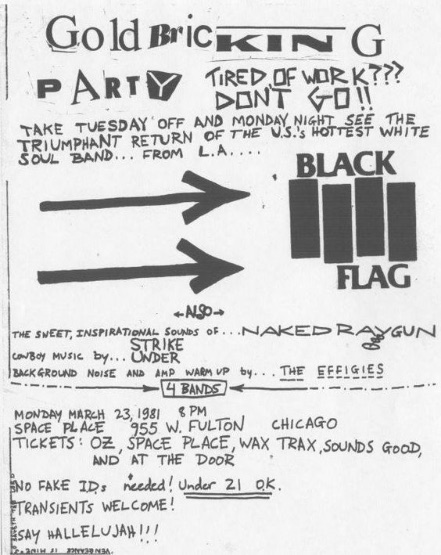 Gold BricKING
PARTY
TIRED OF WORK???
DON'T GO!!
TAKE TUESDAY OFF AND MONDAY NIGHT SEE THE
TRIUMPHANT RETURN OF THE U.S.'s HOTTEST WHITE
SOUL BAND... FROM L.A....
BLACK
FLAG
←ALSO→
THE SWEET, INSPIRATIONAL SOUNDS OF... NAKED RAYGUN
COWBOY MUSIC by... STRIKE
UNDER
BACKGROUND NOISE AND AMP WARM UP by... THE EFFIGIES
4 BANDS
MONDAY MARCH 23, 1981 8 PM
SPACE PLACE 955 W. FULTON CHICAGO
TICKETS: OZ, SPACE PLACE, WAX TRAX, SOUNDS GOOD,
AND AT THE DOOR
NO FAKE IDs needed! Under 21 O.K.
TRANSIENTS WELCOME!
SAY HALLELUJAH!!!
VENGEANCE IS MINE